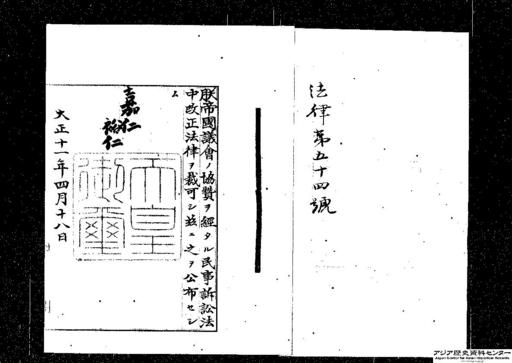 法律第五十四號
朕帝國議會ノ協贊ヲ經タル民事訴訟法
中改正法律ヲ裁可シ茲ニ之ヲ公布セシ
ム
嘉仁
裕仁
天皇
御璽
大正十一年四月十八日
アジア歴史資料センター
Japan Center for Asian Historical Records